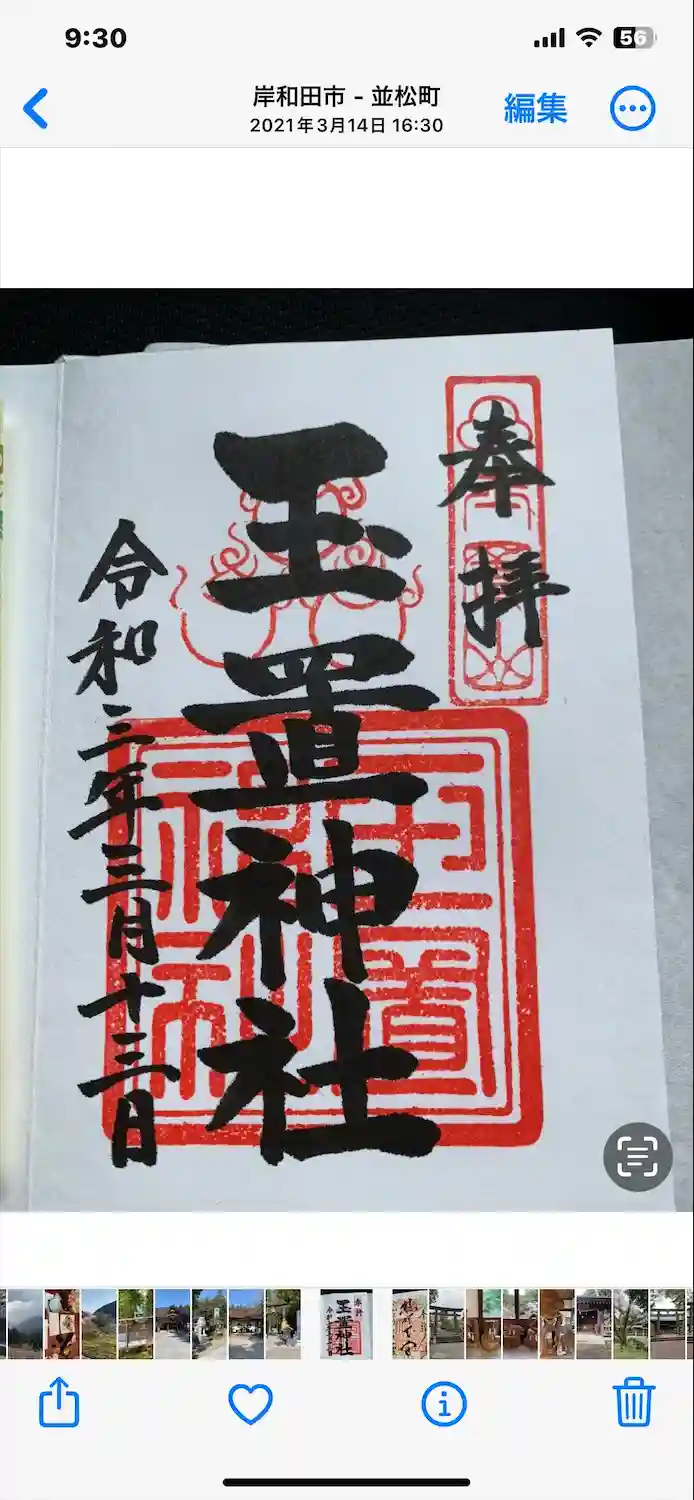 9:30
56
岸和田市 - 並松町
2021年3月14日 16:30
編集
奉拝
玉置神社
令和三年三月十三日